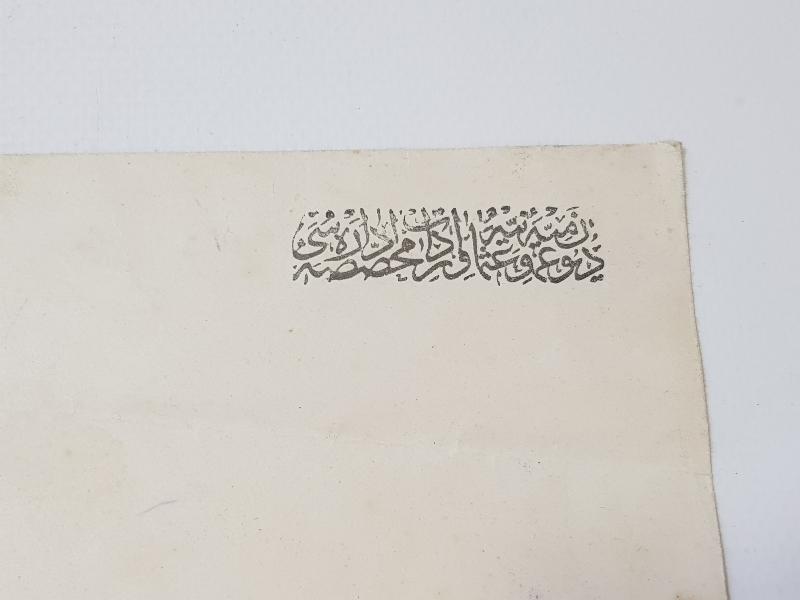 دیون عمومیهٔ عثمانیه واردات مخصصه اداره‌سی